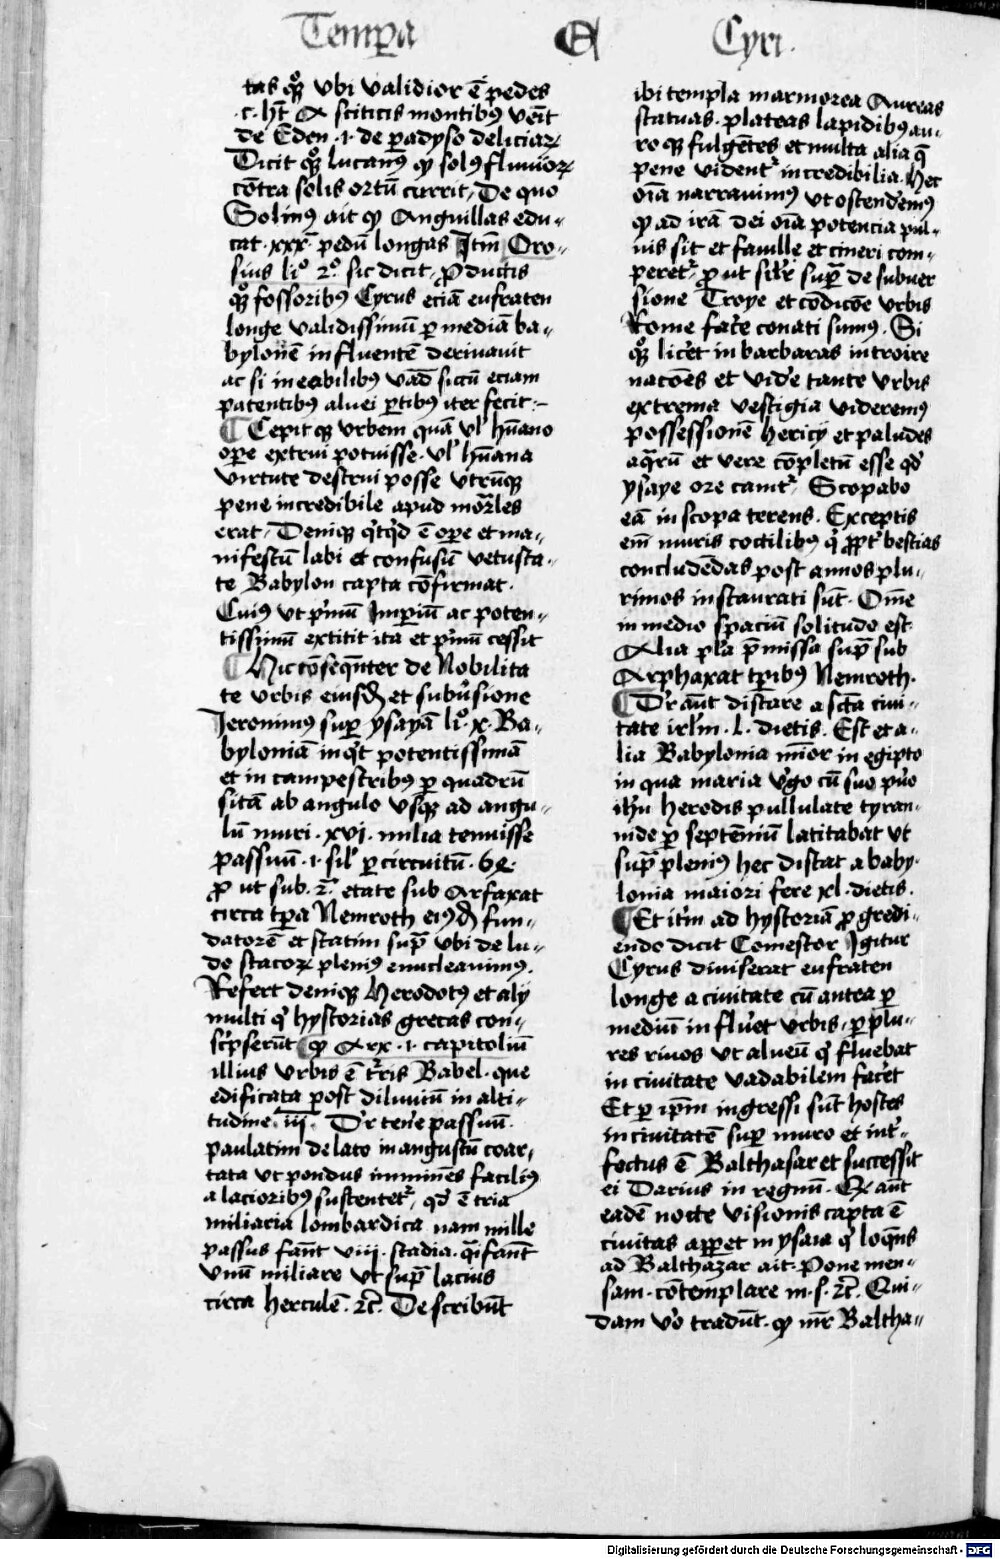 Temp̄a A Cyri.
tas qꝫ vbi validior ē pedes
.c. hꝫ A sciticis montibꝰ venit
de Eden .i. de padyso deliciaꝝ
Dicit qꝫ lucanꝰ qꝫ solꝰ fluuioꝝ
cōtra solis ortū currit, De quo
Solinꝰ ait qꝫ Anguillas edu-
cat .xxx. pedū longas Itm̄ Oro-
sius liº 2º sic dicit, Productis
qꝫ fossoribꝰ Cyrus eciā eufraten
longe validissimū p mediā ba-
bylonē influentē deriuauit
ac si ineabilibꝰ vad siccū eciam
patentibꝰ aluei ptibꝰ iter fecit:-
Cepit qꝫ vrbem quā vl hūano
ope extrui potuisse. vl hūana
virtute destrui posse vtrūqꝫ
pene incredibile apud mōrles
erat, Deniqꝫ qꝫqd ē ope et ma-
nifestū labi et confusū vetusta-
te Babylon capta cōfirmat.
Cuiꝰ vt pimū Impiū ac poten-
tissimū extitit ita et pimū cessit
Hic cōseqnter de Nobilita
te vrbis eiusd et subuisione
Jeronimꝰ sup ysayā liº x. Ba-
byloniā inqt potentissimā
et in campestribꝰ p quadrū
sitā ab angulo vsqꝫ ad angu-
lū muri .xvi. milia tenuisse
passuū .i. sil p circuitū. 64.
p ut sub .2. etate sub Arfaxat
circa tpa Nemroth eiꝰd fun-
datorē et statim sup vbi de lu-
do stacoꝝ pleniꝰ enucleauimꝰ.
Refert deniqꝫ Herodotꝰ et alij
multi q hystorias grecas con-
scpserūt qꝫ Arx .i. capitoliū
illius vrbis ē tris Babel. que
edificata post diluuiū in alti-
tudine .iiij. Dr tene passuū.
paulatim de lato in angustū coar-
tata vt pondus imminēs faciliꝰ
a lacioribꝰ sustentet, qd ē tria
miliaria lombardica nam mille
passus fant viij. stadia. q ifant
vnū miliare vt sup lacius
circa herculē. 2c. Describūt
ibi templa marmorea Aureas
statuas. plateas lapidibꝰ au-
ro qꝫ fulgētes et multa alia q
pene vident incredibilia. Hec
oīa narrauimꝰ vt ostendemꝰ
qꝫ ad irā dei oīa potencia pul-
uis sit et fauille et cineri com-
peret, p ut silr sup de subuer
sione Troye et cōdicōe vrbis
Rome fare conati sumꝰ. Si
qꝫ licet in barbaras introire
natōes et vide tante vrbis
extrema vestigia videremꝰ
possessionē hericij et paludes
aqrū et vere cōpletū esse qd
ysaye ore canit, Scopabo
eā in scopa terens. Exceptis
em̄ muris coctilibꝰ q ppt bestias
concludēdas post annos plu-
rimos instaurati sūt. Om̄e
in medio spaciū solitudo est
Alia pla pmissa sup sub
Arphaxat tpibꝰ Nemroth.
Dr aūt distare a scta ciui-
tate irlm .l. dietis. Est et a-
lia Babylonia mīor in egipto
in qua maria vgo cū suo puo
ihu herodis pullulate tyran-
nide p septēniū latitabat vt
sup pleniꝰ hec distat a baby-
lonia maiori fere xl. dietis.
Et itm ad hystoriā p gredi-
endo dicit Comestor Igitur
Cyrus diuiserat eufraten
longe a ciuitate cū antea p
mediū influet vrbis, p plu-
res riuos vt alueū q fluebat
in ciuitate vadabilem facet
Et p ipm ingressi sūt hostes
in ciuitatē sup muro et int-
fectus ē Balthasar et successit
ei Darius in regnū. Ex aūt
eadē nocte visionis capta ē
ciuitas appet in ysaia q loqns
ad Balthazar ait. Pone men-
sam. cōtemplare in. s. 2c. Qui-
dam vo tradūt. qꝫ mr Baltha-
Digitalisierung gefördert durch die Deutsche Forschungsgemeinschaft - DFG